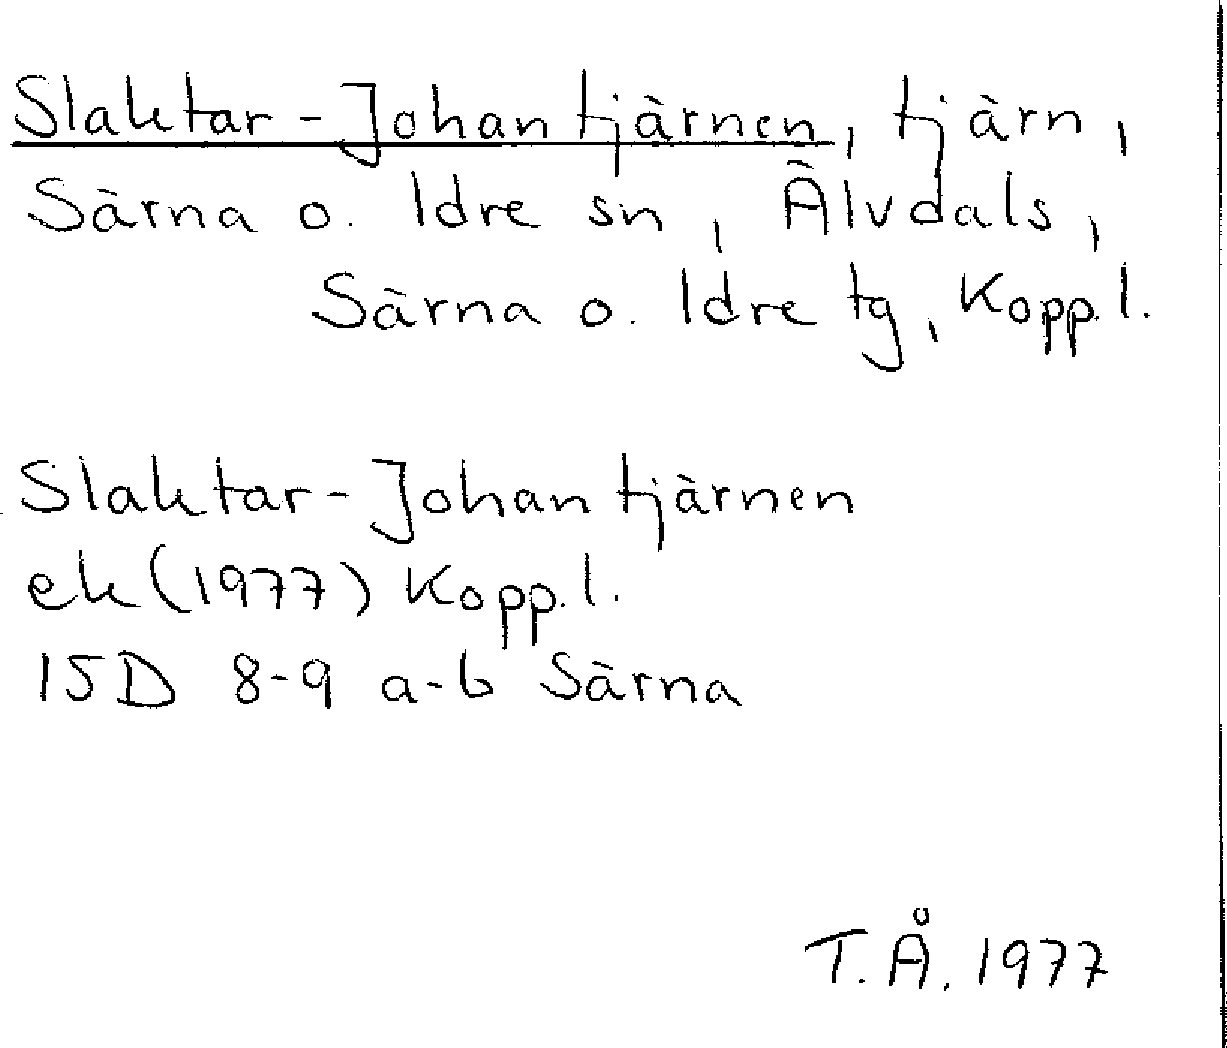 Slaktar-Johantjärnen, tjärn,
Särna o. Idre sn, Älvdals,
Särna o. Idre tg, Kopp.l.
Slaktar-Johantjärnen
ek (1977) Kopp.l.
15D 8-9 a-b Särna
T.Å. 1977